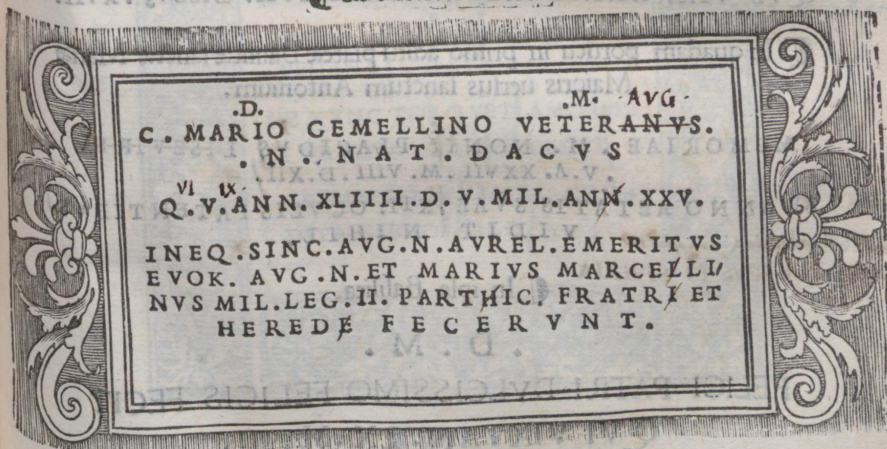 .D. .M. AVG
C. MARIO GEMELLINO VETERANVS.
. N . NAT . DACVS
VI IX
Q.V.ANN.XLIIII.D.V.MIL.ANN.XXV.
INEQ.SINC.AVG.N.AVREL.EMERITVS
EVOK. AVG.N.ET MARIVS MARCELLI
NVS MIL.LEG.II. PARTHIC. FRATRI ET
HEREDE FECERVNT.